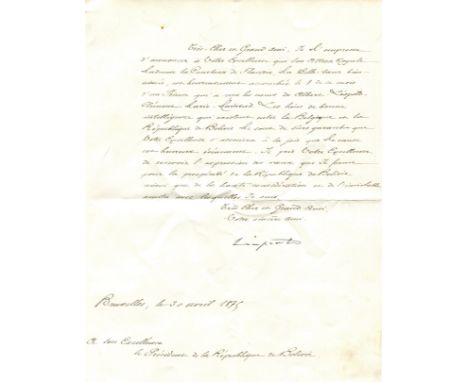 Très Cher et Grand Ami. Je m'empresse
d'annoncer à Votre Excellence que Son Altesse Royale
Madame la Comtesse de Flandre, Ma Belle-Sœur bien
aimée, est heureusement accouchée le 8 de ce mois
d'un Prince qui a reçu les noms de Albert Léopold
Clément Marie Meinrad. Les liens de bonne
intelligence qui existent entre la Belgique et la
République de Bolivie Me sont de sûrs garants que
Votre Excellence s'associera à la joie que Me cause
cet heureux événement. Je prie Votre Excellence
de recevoir l'expression des vœux que Je forme
pour la prospérité de la République de Bolivie
ainsi que de la haute considération et de l'inviolable
amitié avec lesquelles Je suis,
Très Cher et Grand Ami,
Votre sincère ami.
Léopold
Bruxelles, le 30 avril 1875
A Son Excellence
le Président de la République de Bolivie